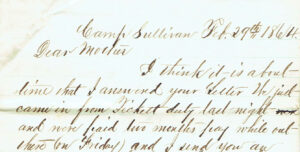 Camp Sullivan Feb. 29th 1864.
Dear Mother
I think it is about
time that I answerd your Letter We just
came in from Picket duty last night
and were paid two months pay while out
there (on Friday) and I send you an